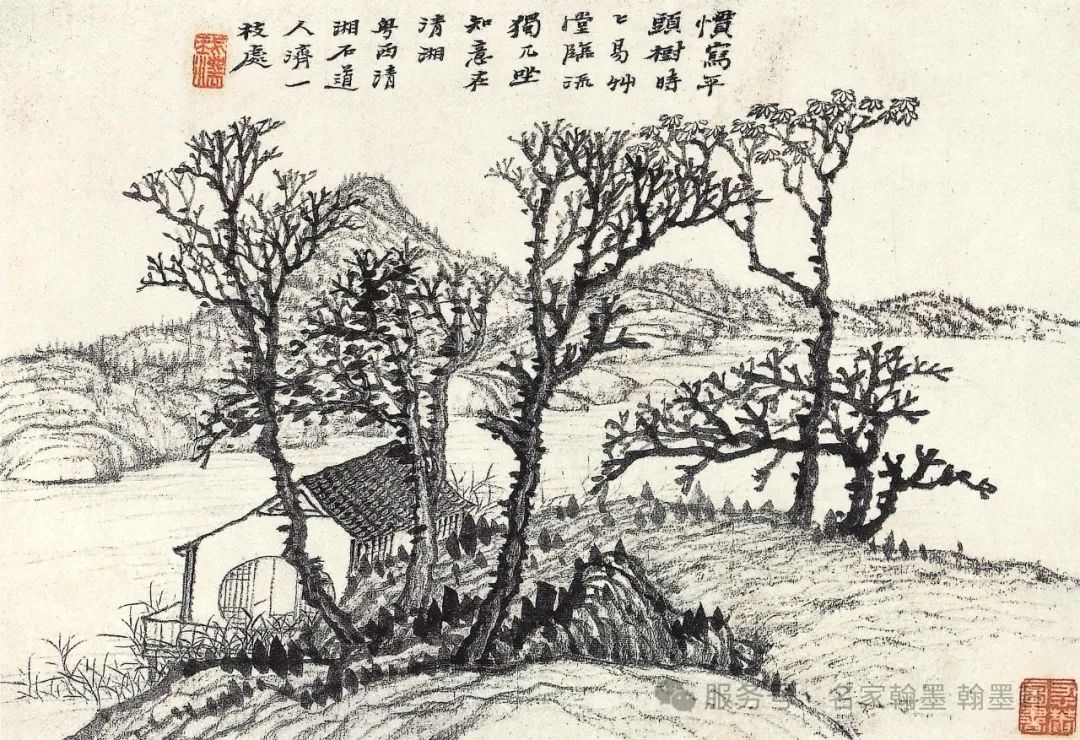 慣寫平
頭樹時
〻易艸
堂臨流
獨兀坐
知意在
清湘
粤西清
湘石道
人濟一
枝處
服务号 · 名家翰墨 翰墨